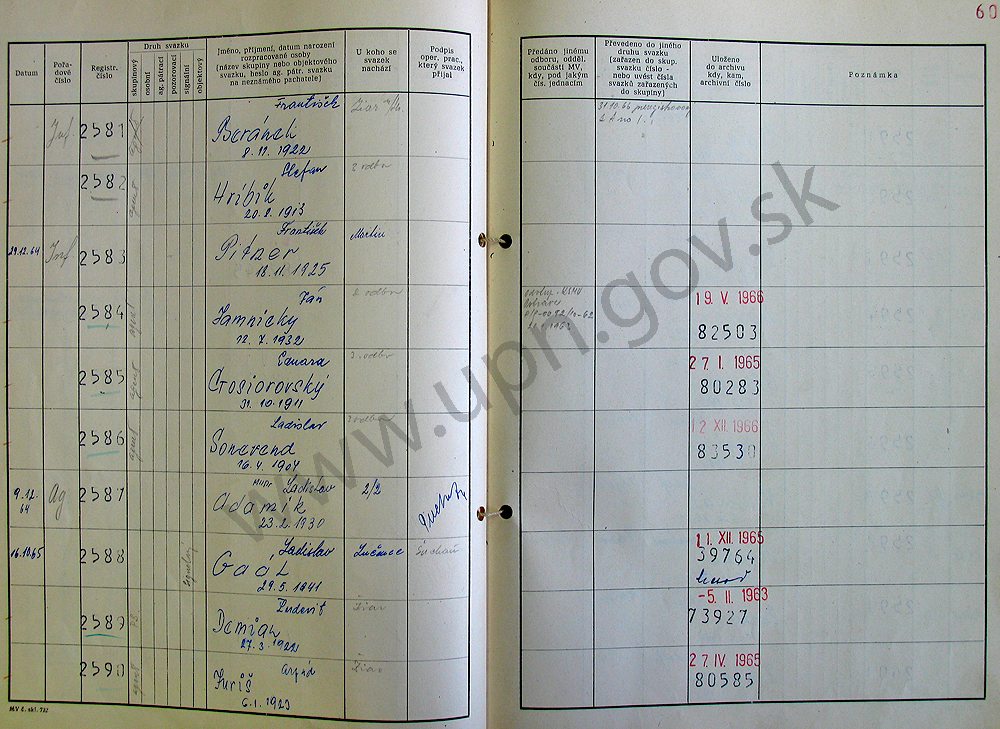 60
Datum
Pořa-
dové
číslo
Registr.
číslo
Druh svazku
skupinový
osobní
ag. pátrací
pozorovací
signální
objektový
Jméno, příjmení, datum narození
rozpracované osoby
(název skupiny nebo objektového
svazku, heslo ag. pátr. svazku
na neznámého pachatele)
U koho se
svazek
nachází
Podpis
oper. prac.,
který svazek
přijal
Předáno jinému
odboru, odděl.
součásti MV,
kdy, pod jakým
čís. jednacím
Převedeno do jiného
druhu svazku
(zařazen do skup.
svazku číslo -
nebo uvést čísla
svazků zařazených
do skupiny)
Uloženo
do archivu
kdy, kam,
archivní číslo
Poznámka
Inf 2581 František
Beránek
8. 11. 1922
31.10.66
2582 agent Štefan 2. odbor
Hríbik
20. 2. 1913
29.12.64 Inf 2583 František Martin
Pitzer
18. 11. 1925
2584 agent Ján 2. odbor
Jamnický
12. 7. 1932
19. V. 1966
82503
2585 agent 3. odbor
31. 10. 1911
27. I. 1965
80283
2586 agent Ladislav
16. 4. 1904
12 XII. 1966
83530
9.12.
64 Ag 2587 Ladislav 2/2
Adamík
23. 2. 1930
16.10.65 2588 Ladislav Lučenec
Gaál
29. 5. 1941
11. XII. 1965
39764
2589 Ľudovít Žiar
Demian
27. 3. 1922
-5. II. 1963
73927
2590 agent Arpád Žiar
Juriš
6. 1. 1923
27. IV. 1965
80585
MV č. skl. 732
www.upn.gov.sk